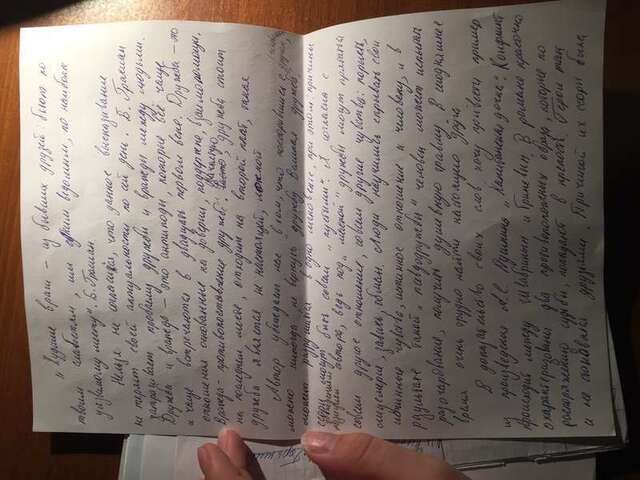 "Худшие враги – из бывших друзей: бьют по
твоим слабостям, им одним ведомым, по наиболее
уязвимому месту". Б. Грасиан.
Нельзя не согласится, что данное высказывание
не теряет своей актуальности по сей день. Б. Грасиан
затрагивает проблему дружбы и вражды между людьми.
Дружба и вражда – это антиподы, которые всё чаще
и чаще встречаются в двадцать первом веке. Дружба – это
отношения основанные на доверии, поддержке, взаимопомощи.
Вражда – противопоставление дружбе. Зачастую, дружба стоит
на последнем месте, отходит на второй план, такая
дружба является не настоящей, ложной
Автор убеждает нас в том, что поссорившись с другом,
можно никогда не вернуть дружбу. Ваша дружба
может разрушиться в одно мгновение, при этом причины
ссоры могут быть совсем "пустыми". Я согласна с
позицией автора, ведь под "маской" дружбы могут прятаться
совсем другое отношение, совсем другие чувства:
лицемерие, зависть, обман. Люди научились скрывать свои
истинные чувства, истинное отношение к человеку, и в
результате такой "псевдодружбы" человек может испытать
разочарование, получить душевную травму. В сегодняшнее
время очень трудно найти настоящего друга.
В доказательство своих слов, хочу привести пример
из произведения А.С. Пушкина "Капитанская дочка". Конфликт
происходит между Швабриным и Гриневым. В романе красочно
охарактеризованы два противоположных образа, которые по
распоряжению судьбы, попадают в крепость. Герои так
и не становятся друзьями. Причиной их ссоры была